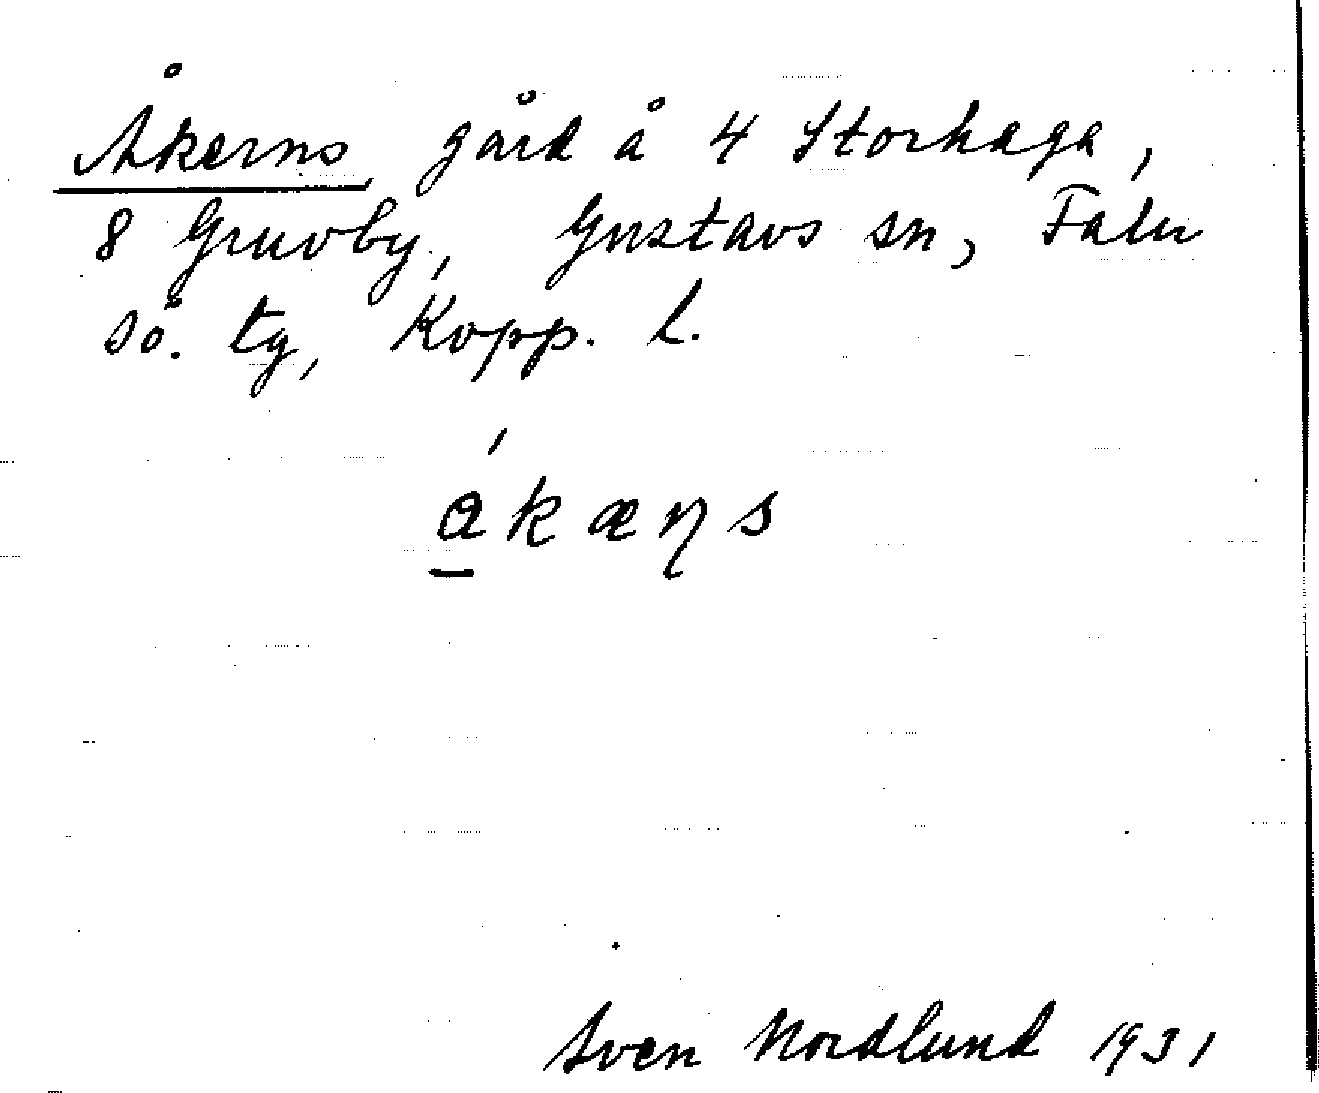 Åkerns, gård å 4 Storhaga,
8 Gruvby, Gustavs sn, Falu
sö. tg, Kopp. l.
á̲kæɳs
Sven Nordlund 1931